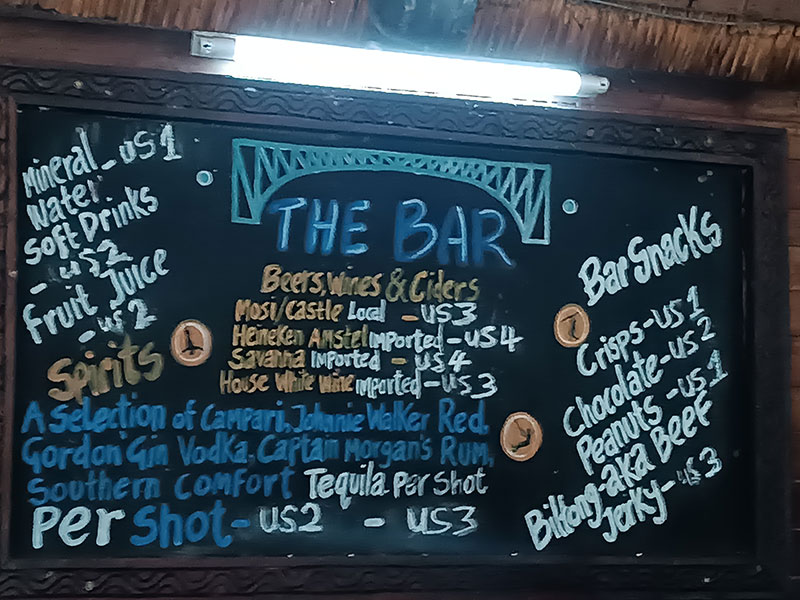 Mineral - US 1
Water
Soft Drinks
- US 2
Fruit Juice
- US 2
THE BAR
Beers, Wines & Ciders
Mosi/Castle Local - US3
Heineken Amstel Imported - US4
Savanna Imported - US4
House White Wine Imported - US3
Spirits
A Selection of Campari, Johnnie Walker Red,
Gordon Gin Vodka, Captain Morgan's Rum,
Southern Comfort Tequila Per Shot
Per Shot - US2 - US3
Bar Snacks
Crisps - US 1
Chocolate - US 2
Peanuts - US 1
Biltong-aka Beef
Jerky - US 3